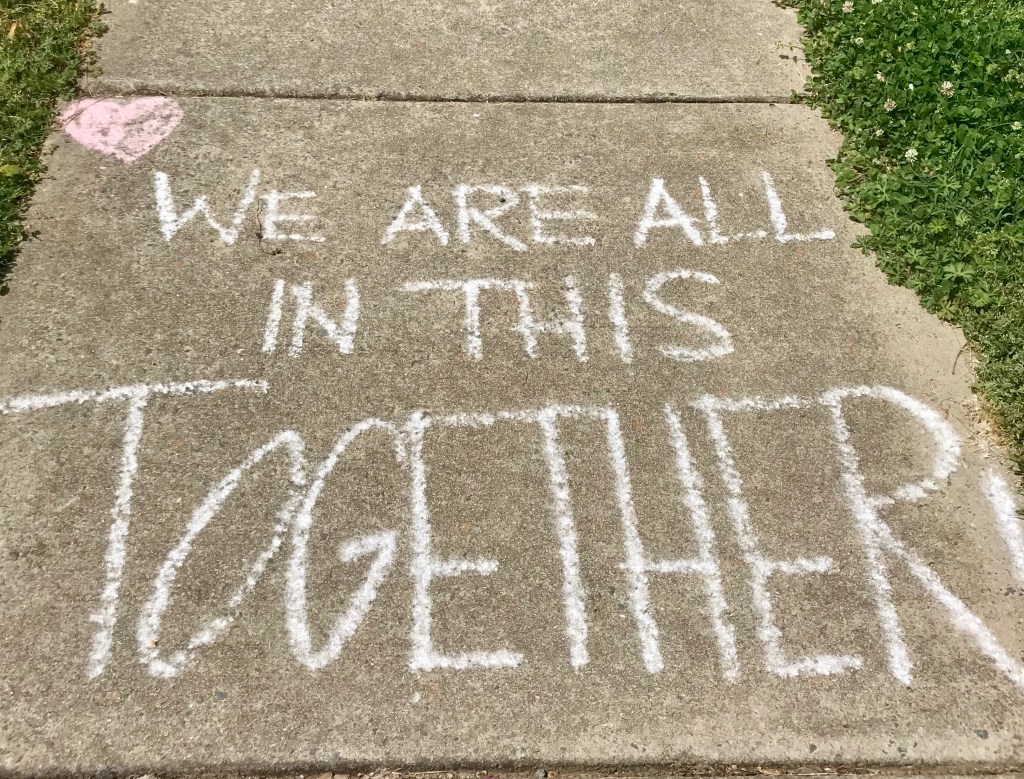 WE ARE ALL
IN THIS
TOGETHER